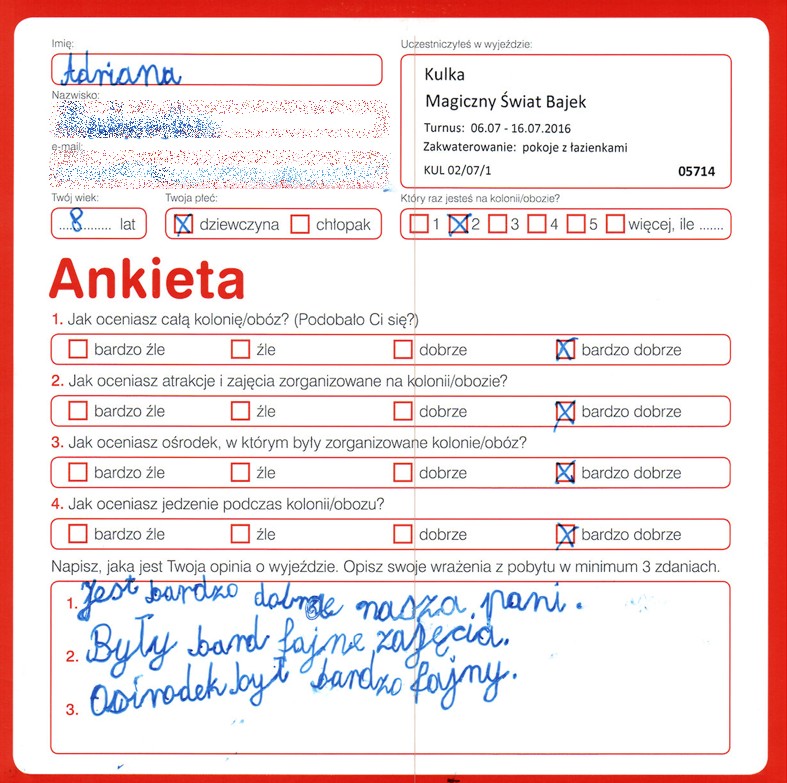 Imię:
Adriana
Nazwisko:
e-mail:
Uczestniczyłeś w wyjeździe:
Kulka
Magiczny Świat Bajek
Turnus: 06.07 - 16.07.2016
Zakwaterowanie: pokoje z łazienkami
KUL 02/07/1 05714
Twój wiek:
....8......... lat
Twoja płeć:
X dziewczyna chłopak
Który raz jesteś na kolonii/obozie?
1 X 2 3 4 5 więcej, ile .......
Ankieta
1. Jak oceniasz całą kolonię/obóz? (Podobało Ci się?)
bardzo źle źle dobrze X bardzo dobrze
2. Jak oceniasz atrakcje i zajęcia zorganizowane na kolonii/obozie?
bardzo źle źle dobrze X bardzo dobrze
3. Jak oceniasz ośrodek, w którym były zorganizowane kolonie/obóz?
bardzo źle źle dobrze X bardzo dobrze
4. Jak oceniasz jedzenie podczas kolonii/obozu?
bardzo źle źle dobrze X bardzo dobrze
Napisz, jaka jest Twoja opinia o wyjeździe. Opisz swoje wrażenia z pobytu w minimum 3 zdaniach.
1. Jest bardzo nasza pani.
2. Były bard fajne zajęcia.
3. Ośrodek był bardzo fajny.